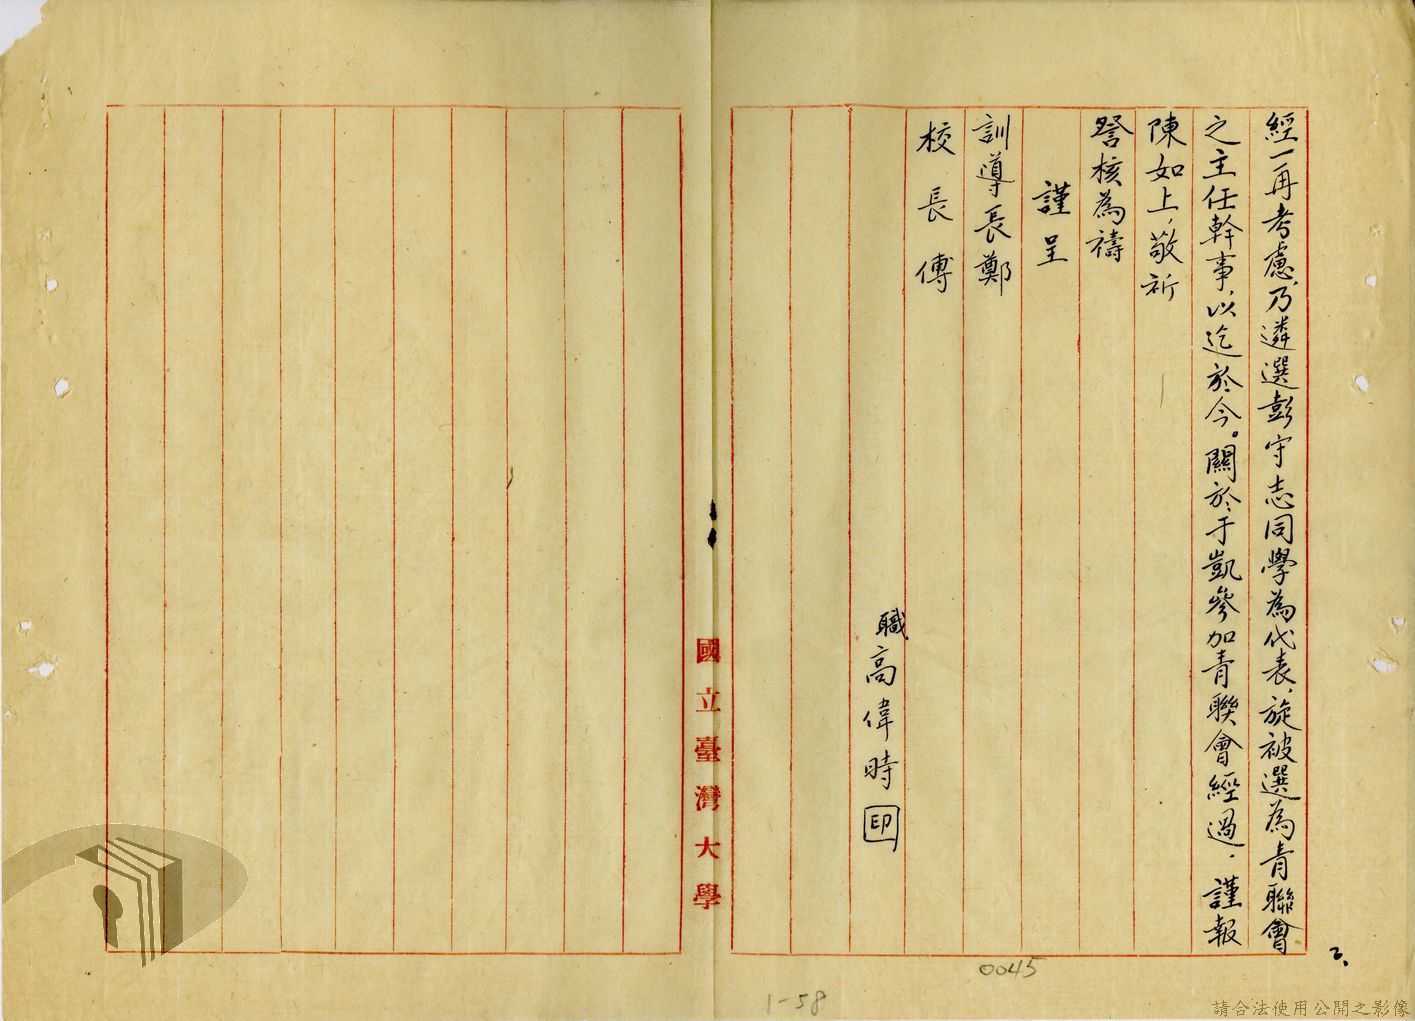 經一再考慮，乃遴選彭守志同學為代表，旋被選為青聯會
之主任幹事，以迄於今。關於于凱參加青聯會經過，謹報
陳如上，敬祈
詧核為禱
謹呈
訓導長鄭
校長傅
職高偉時印
國立臺灣大學
2、
0045
1-58
請合法使用公開之影像